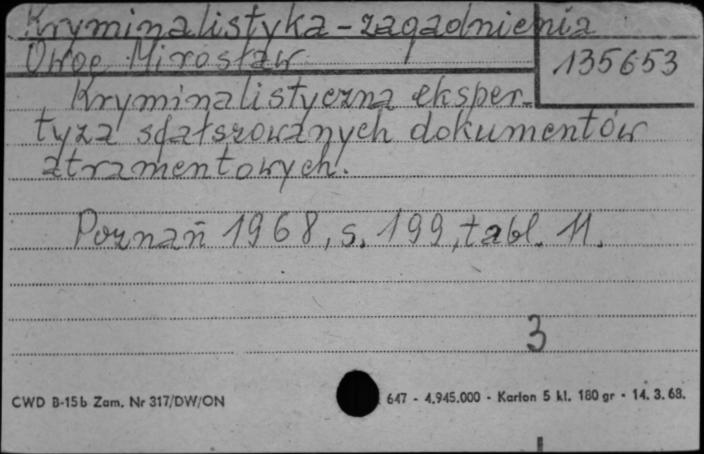 Kryminalistyka - zagadnienia
Owoc Mirosław
135653
Kryminalistyczna eksper-
tyza sfałszowanych dokumentów
atramentowych.
Poznań 1968, s. 199, tabl. 11.
3
CWD B-15b Zam. Nr 317/DW/ON
647 - 4.945.000 - Karton 5 kl. 180 gr - 14. 3. 68.